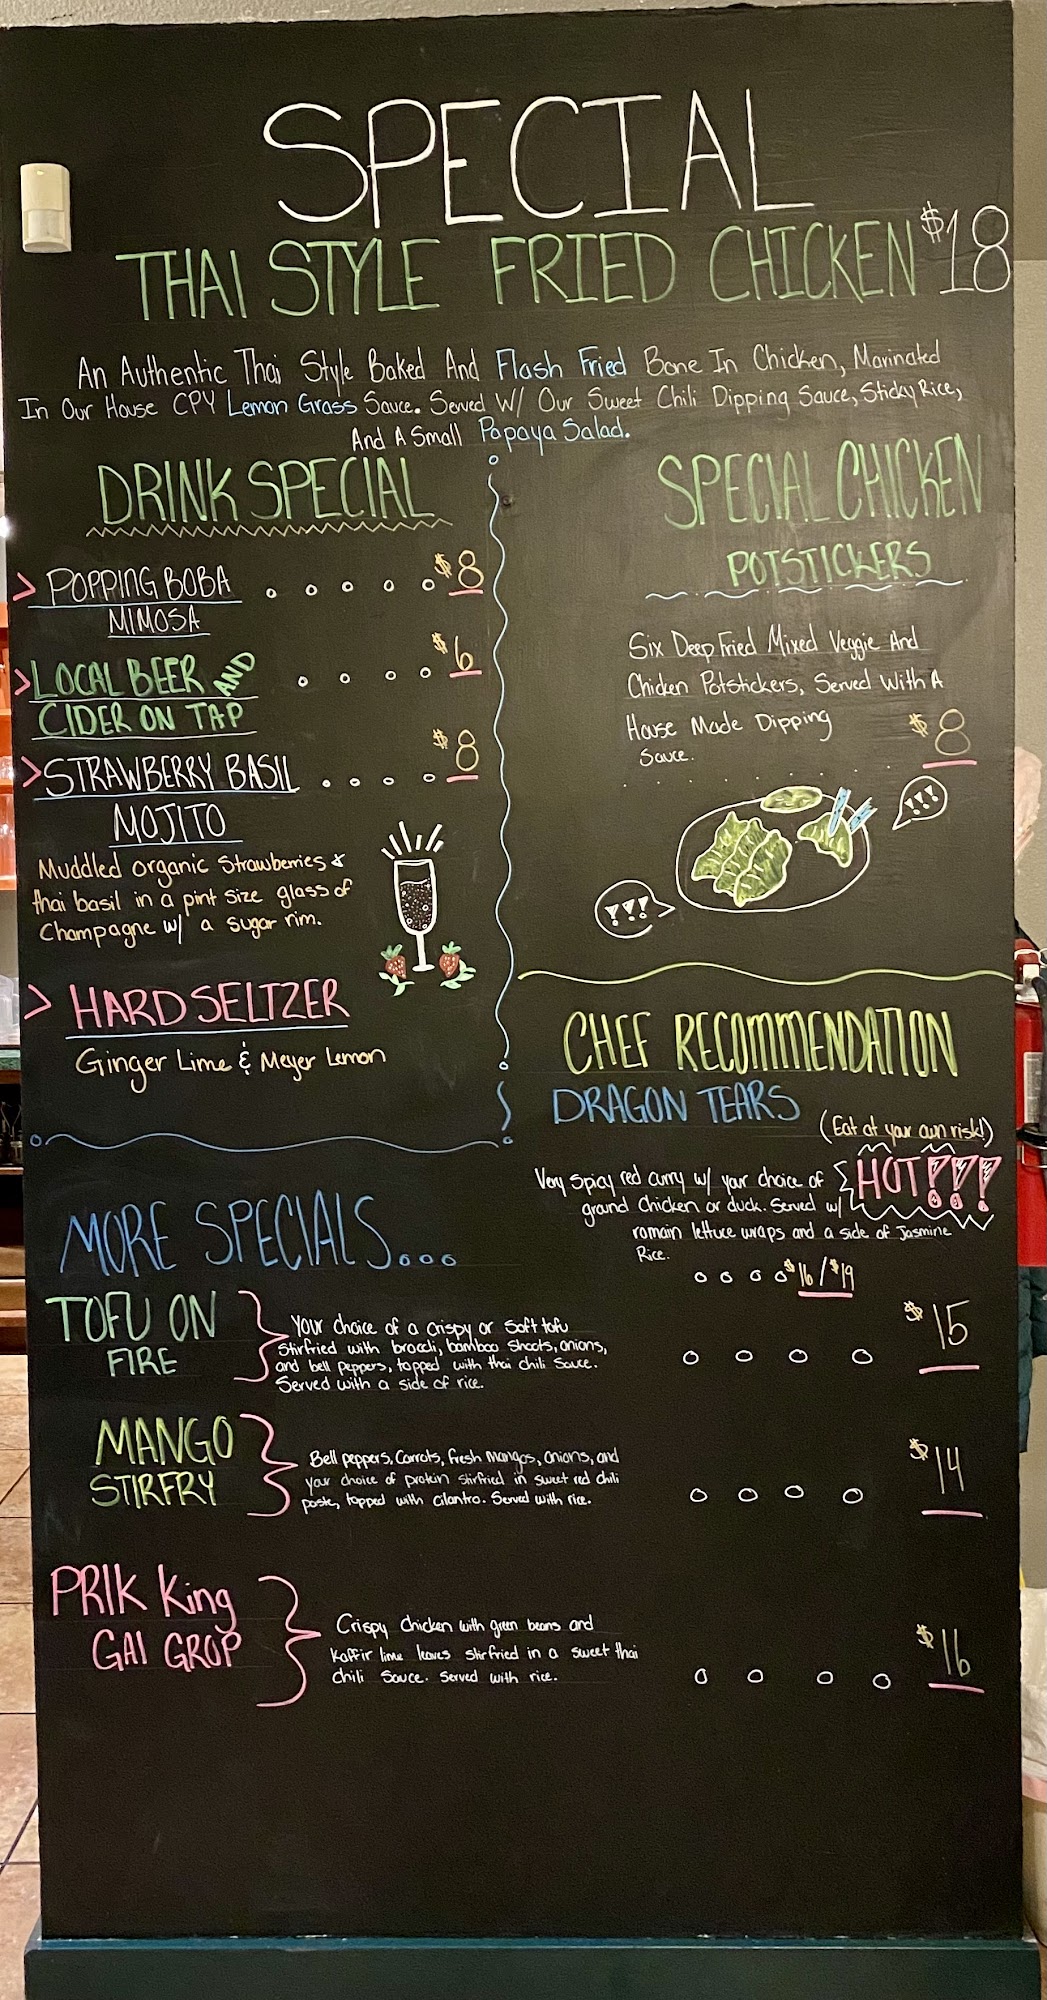 SPECIAL
THAI STYLE FRIED CHICKEN $18
An Authentic Thai Style Baked And Flash Fried Bone In Chicken, Marinated
In Our House CPY Lemon Grass Sauce. Served W/ Our Sweet Chili Dipping Sauce, Sticky Rice,
And A Small Papaya Salad.
DRINK SPECIAL
> POPPING BOBA $8
MIMOSA
> LOCAL BEER AND $6
CIDER ON TAP
> STRAWBERRY BASIL $8
MOJITO
Muddled organic strawberries &
thai basil in a pint size glass of
Champagne w/ a sugar rim.
> HARD SELTZER
Ginger Lime & Meyer Lemon
SPECIAL CHICKEN
POTSTICKERS
Six Deep Fried Mixed Veggie And
Chicken Potstickers, Served With A
House Made Dipping
Sauce. $8
!!!
!!!
CHEF RECOMMENDATION
DRAGON TEARS
(Eat at your own risk!)
HOT!!!
Very spicy red curry w/ your choice of
ground chicken or duck. Served w/
romain lettuce wraps and a side of Jasmine
Rice.
$16/$19
MORE SPECIALS...
TOFU ON
FIRE
Your choice of a crispy or soft tofu
stirfried with brocli, bamboo shoots, onions,
and bell peppers, topped with thai chili sauce.
Served with a side of rice.
$15
MANGO
STIRFRY
Bell peppers, Carrots, fresh mangos, onions, and
your choice of protein stirfried in sweet red chili
paste, topped with cilantro. Served with rice.
$14
PRIK King
GAI GROP
Crispy chicken with green beans and
Kaffir lime leaves stirfried in a sweet thai
chili sauce. Served with rice.
$16